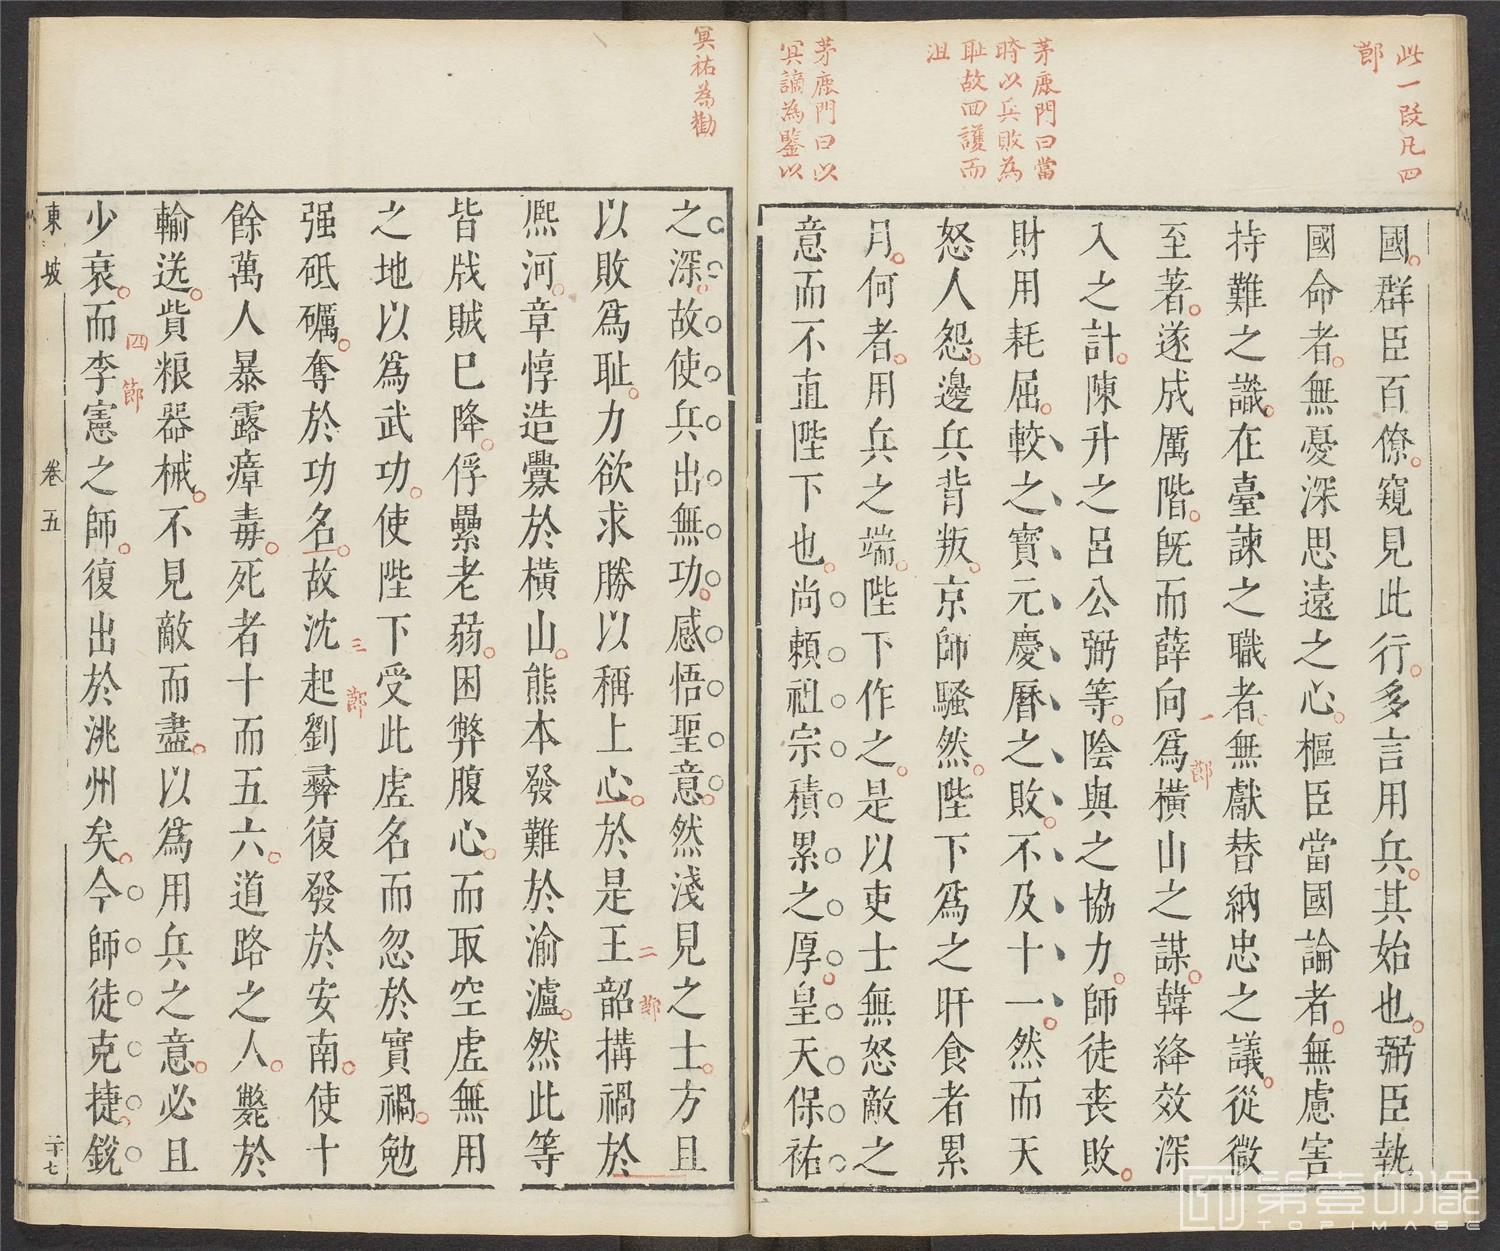 此一段凡四
節
茅鹿門曰當
時以兵敗為
耻故回護而
沮
茅鹿門曰以
冥謫為鑒以
國群臣百僚窺見此行多言用兵其始也弼臣執
國命者無憂深思遠之心樞臣當國論者無慮害
持難之識在臺諫之職者無獻替納忠之議從微
至著遂成厲階旣而薛向爲橫山之謀韓絳效深
一節
入之計陳升之呂公弼等陰與之協力師徒丧敗
財用耗屈較之寶元慶曆之敗不及十一然而天
怒人怨邊兵背叛京師騷然陛下爲之旰食者累
月何者用兵之端陛下作之是以吏士無怒敵之
意而不直陛下也尚賴祖宗積累之厚皇天保祐
冥祐為勸
之深故使兵出無功感悟聖意然淺見之士方且
以敗爲耻力欲求勝以稱上心於是王韶搆禍於
二節
熈河章惇造釁於橫山熊本發難於渝瀘然此等
皆戕賊已降俘纍老弱困弊腹心而取空虛無用
之地以爲武功使陛下受此虛名而忽於實禍勉
强砥礪奪於功名故沈起劉彛復發於安南使十
三節
餘萬人暴露瘴毒死者十而五六道路之人斃於
輸送貲粮器械不見敵而盡以爲用兵之意必且
少衰而李憲之師復出於洮州矣今師徒克捷銳
四節
東坡
卷五
二十七
第壹印像
TOPIMAGE